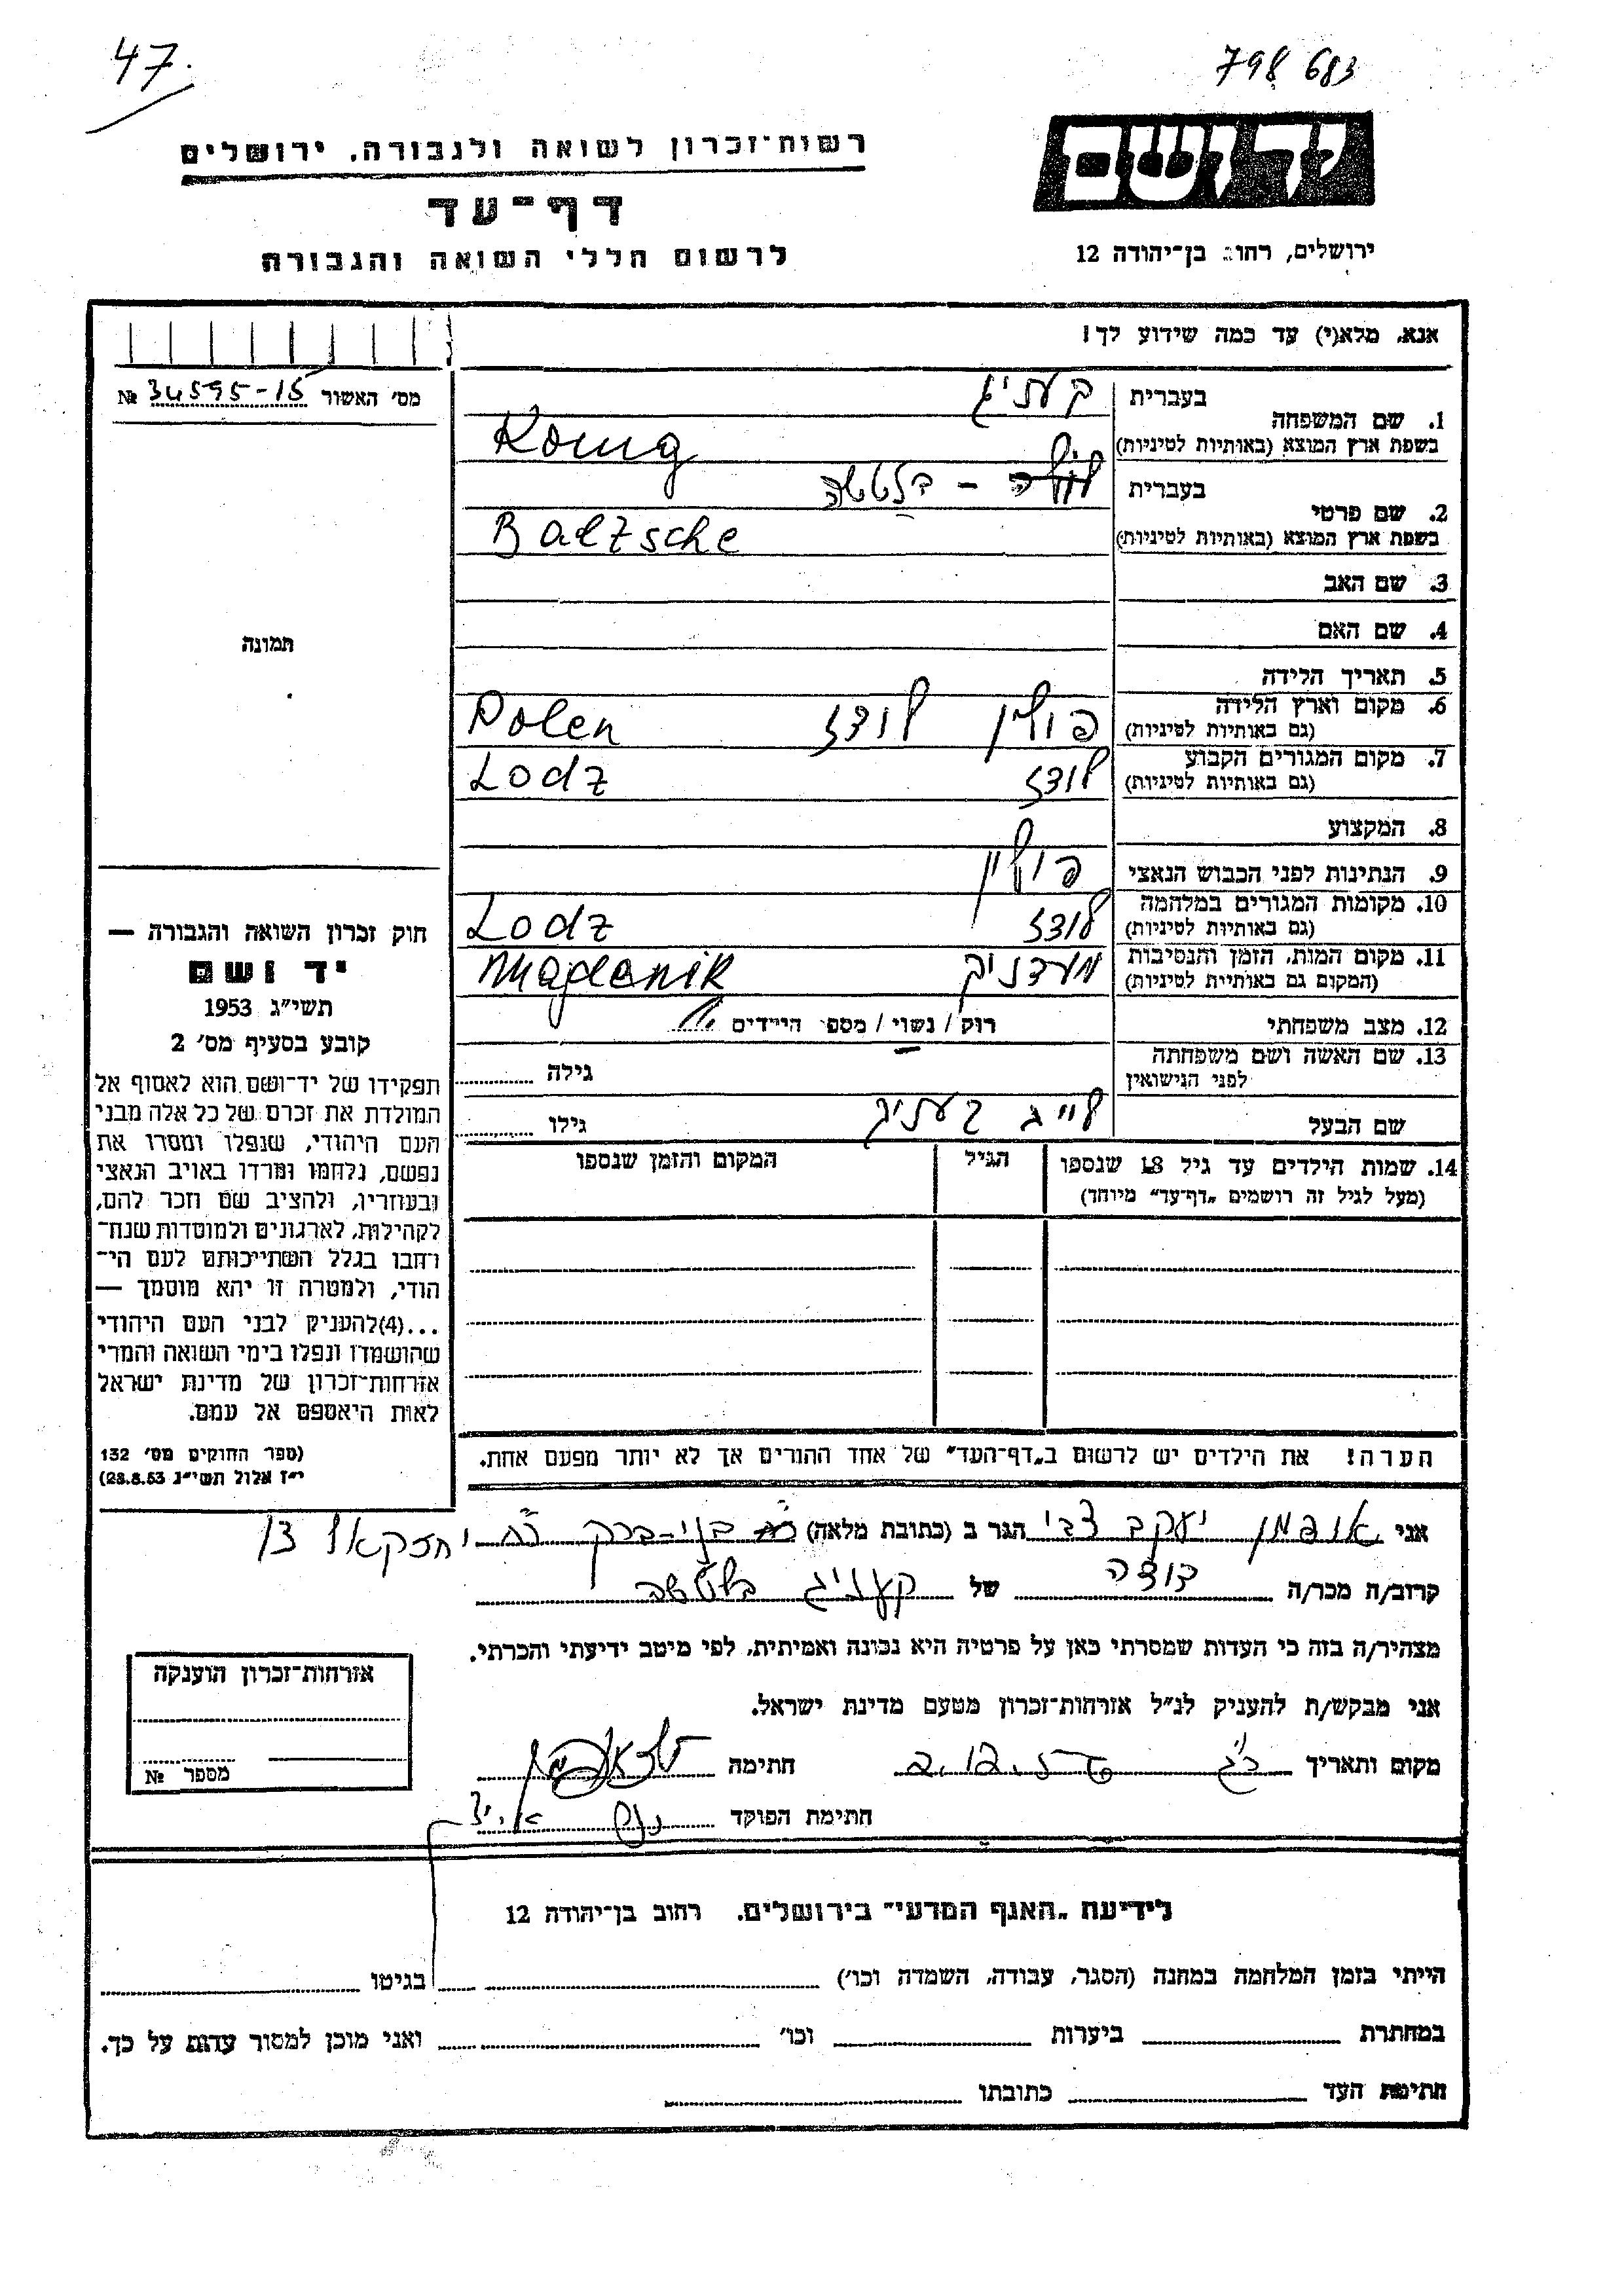 47.
798 683
רשות־זכרון לשואה ולגבורה. ירושלים
דף־עד
לרשום חללי השואה והגבורה
יד ושם
ירושלים, רחוב בן־יהודה 12
אנא, מלא(י) עד כמה שידוע לך!
מס׳ האשור № 34595-15
1. שם המשפחה
בעברית קעניג
בשפת ארץ המוצא (באותיות לטיניות) Konig
2. שם פרטי
בעברית
בשפת ארץ המוצא (באותיות לטיניות) Baltzsche
3. שם האב
4. שם האם
5. תאריך הלידה
6. מקום וארץ הלידה
(גם באותיות לטיניות) פולין לודז Polen
7. מקום המגורים הקבוע
(גם באותיות לטיניות) לודז Lodz
8. המקצוע
9. הנתינות לפני הכבוש הנאצי פולין
10. מקומות המגורים במלחמה
(גם באותיות לטיניות) לודז Lodz
11. מקום המות, הזמן והנסיבות
(המקום גם באותיות לטיניות) מידניק Majdanik
12. מצב משפחתי רוק / נשוי / מספר הילדים
13. שם האשה ושם משפחתה
לפני הנישואין
גילה
שם הבעל לייב קעניג גילו
14. שמות הילדים עד גיל 18 שנספו
(מעל לגיל זה רושמים „דף־עד״ מיוחד)
הגיל
המקום והזמן שנספו
הערה! את הילדים יש לרשום ב„דף־העד״ של אחד ההורים אך לא יותר מפעם אחת.
תמונה
חוק זכרון השואה והגבורה —
יד ושם
תשי״ג 1953
קובע בסעיף מס׳ 2
תפקידו של יד־ושם הוא לאסוף אל
המולדת את זכרם של כל אלה מבני
העם היהודי, שנפלו ומסרו את
נפשם, נלחמו ומרדו באויב הנאצי
ובעוזריו, ולהציב שם וזכר להם,
לקהילות, לארגונים ולמוסדות שנח־
רחבו בגלל השתייכותם לעם הי־
הודי, ולמטרה זו יהא מוסמך —
...(4)להעניק לבני העם היהודי
שהושמדו ונפלו בימי השואה והמרי
אזרחות־זכרון של מדינת ישראל
לאות היאספם אל עמם.
(ספר החוקים מס׳ 132
י״ז אלול תשי״ג 28.8.53)
אני אופמן יעקב צבי הגר ב (כתובת מלאה) בני-ברק רח יחזקאל 13
קרוב/ה מכר/ה דודה של קעניג בלטשה
מצהיר/ה בזה כי העדות שמסרתי כאן על פרטיה היא נכונה ואמיתית, לפי מיטב ידיעתי והכרתי.
אני מבקש/ת להעניק לנ״ל אזרחות־זכרון מטעם מדינת ישראל.
מקום ותאריך חתימה
חתימת הפוקד
אזרחות־זכרון הוענקה
מספר №
לידיעת „האגף המדעי״ בירושלים. רחוב בן־יהודה 12
הייתי בזמן המלחמה במחנה (הסגר, עבודה, השמדה וכו׳) בגיטו
במחתרת ביערות וכו׳ ואני מוכן למסור עדות על כך.
חתימת העד כתובתו